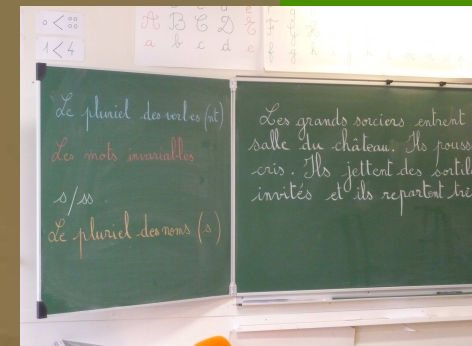 1 < 4
A B C D E
a b c d e
Le pluriel des verbes (nt)
Les mots invariables
s/ss
Le pluriel des noms (s)
Les grands sorciers entrent
salle du château. Ils pouss
cris. Ils jettent des sortil
invités et ils repartent trè